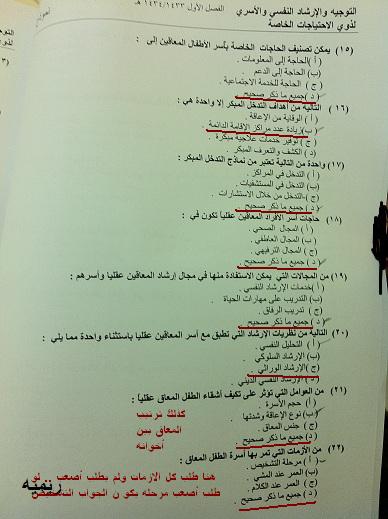 التوجيه والإرشاد النفسي والأسري
لذوي الاحتياجات الخاصة
الفصل الأول ١٤٣٤/١٤٣٣ هـ
(١٥) يمكن تصنيف الحاجات الخاصة بأسر الأطفال المعاقين إلى :
(أ) الحاجة إلى المعلومات .
(ب) الحاجة إلى الدعم .
(ج) الحاجة للخدمة الاجتماعية .
(د) جميع ما ذكر صحيح .
(١٦) التالية من أهداف التدخل المبكر إلا واحدة هي :
(أ) الوقاية من الإعاقة .
(ب) زيادة عدد مراكز الإقامة الدائمة .
(ج) توفير خدمات علاجية مبكرة .
(د) الكشف والتعرف المبكر .
(١٧) واحدة من التالية تعتبر من نماذج التدخل المبكر :
(أ) التدخل في المراكز .
(ب) التدخل في المستشفيات .
(ج) التدخل من خلال الاستشارات .
(د) جميع ما ذكر صحيح .
(١٨) حاجات أسر الأفراد المعاقين عقلياً تكون في :
(أ) المجال الصحي .
(ب) المجال العاطفي .
(ج) المجال الترفيهي .
(د) جميع ما ذكر صحيح .
(١٩) من المجالات التي يمكن الاستفادة منها في مجال إرشاد المعاقين عقليا وأسرهم :
(أ) خدمات الإرشاد النفسي .
(ب) التدريب على مهارات الحياة .
(ج) تدريب الرفاق .
(د) جميع ما ذكر صحيح .
(٢٠) التالية من نظريات الإرشاد التي تطبق مع أسر المعاقين عقليا باستثناء واحدة مما يلي :
(أ) التحليل النفسي .
(ب) الإرشاد السلوكي
(ج) الإرشاد الوراثي .
(د) الإرشاد النفسي الديني .
(٢١) من العوامل التي تؤثر على تكيف أشقاء الطفل المعاق عقلياً :
(أ) حجم الأسرة .
(ب) نوع الإعاقة وشدتها .
(ج) جنس المعاق .
(د) جميع ما ذكر صحيح .
كذلك ترتيب
المعاق بين
أخوانه
(٢٢) من الأزمات التي تمر بها أسرة الطفل المعاق :
(أ) مرحلة التشخيص .
(ب) العمر عند المشي .
(ج) العمر عند الكلام .
(د) جميع ما ذكر صحيح .
هنا طلب كل الازمات ولم يطلب أصعب لو
طلب أصعب مرحله يكون الجواب التشخيص